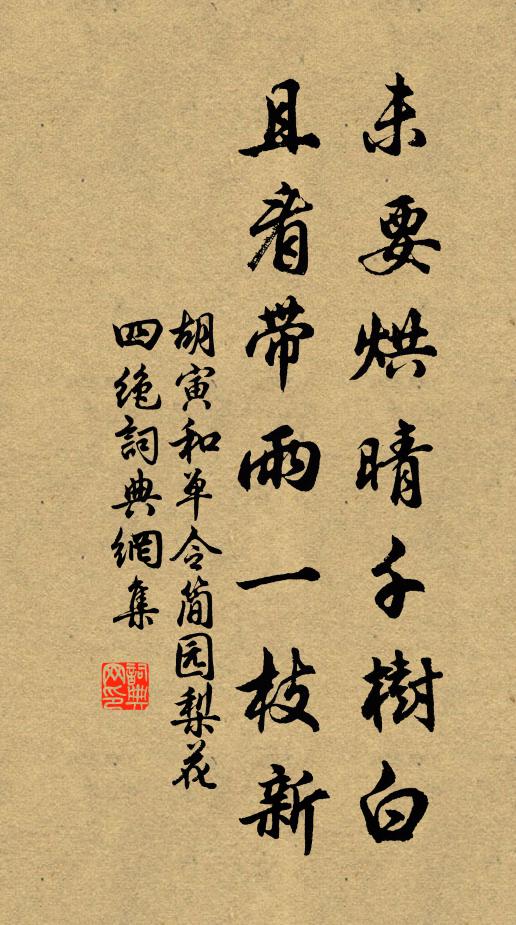 未要烘晴千樹白
且看带雨一枝新
胡寅和单令简园梨花
四绝詞典網集
詞典
网印